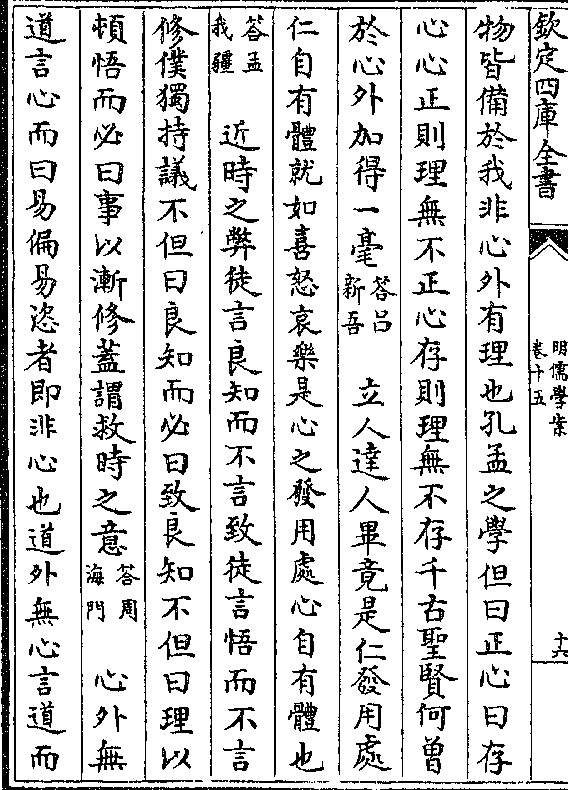 欽定四庫全書
明儒學案
卷十五
十六
物皆備於我非心外有理也孔孟之學但曰正心曰存
心心正則理無不正心存則理無不存千古聖賢何曽
於心外加得一毫答呂新吾 立人達人畢竟是仁發用處
仁自有體就如喜怒哀樂是心之發用處心自有體也
答孟我疆 近時之弊徒言良知而不言致徒言悟而不言
修僕獨持議不但曰良知而必曰致良知不但曰理以
頓悟而必曰事以漸修蓋謂救時之意答周海門 心外無
道言心而曰易偏易恣者即非心也道外無心言道而